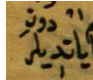 دونر
یاتدیلر